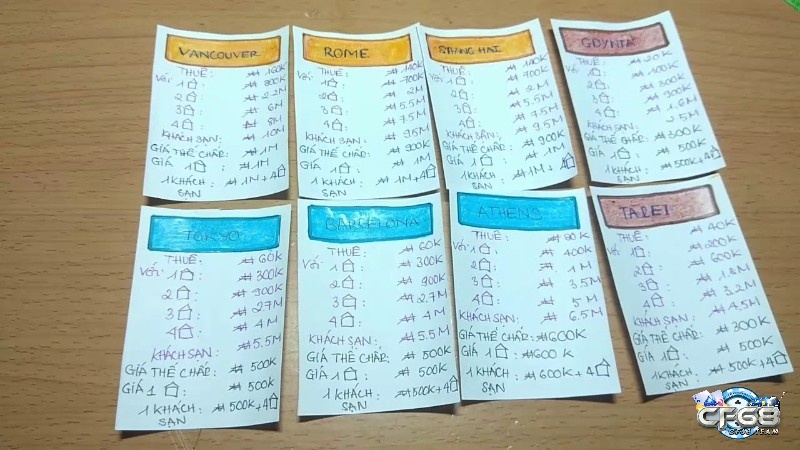 VANCOUVER
THUÊ: ₳ 160K
Với 1⌂: ₳ 800K
2⌂: ₳ 2.2M
3⌂: ₳ 6M
4⌂: ₳ 8M
KHÁCH SẠN: ₳ 10M
GIÁ THẾ CHẤP: ₳ 1M
GIÁ 1⌂: ₳ 1M
1 KHÁCH SẠN: ₳ 1M + 4⌂
ROME
THUÊ: ₳ 140K
Với: 1⌂: ₳ 700K
2⌂: ₳ 2M
3⌂: ₳ 5.5M
4⌂: ₳ 7.5M
KHÁCH SẠN: ₳ 9.5M
GIÁ THẾ CHẤP: ₳ 900K
GIÁ 1⌂: ₳ 1M
1 KHÁCH SẠN: ₳ 1M + 4⌂
SHANG HAI
THUÊ: ₳ 140K
Với: 1⌂: ₳ 700K
2⌂: ₳ 2M
3⌂: ₳ 5.5M
4⌂: ₳ 7.5M
KHÁCH SẠN: ₳ 9.5M
GIÁ THẾ CHẤP: ₳ 900K
GIÁ 1⌂: ₳ 1M
1 KHÁCH SẠN: ₳ 1M + 4⌂
GDYNIA
THUÊ: ₳ 20K
Với 1⌂: ₳ 100K
2⌂: ₳ 300K
3⌂: ₳ 900K
4⌂: ₳ 1.6M
KHÁCH SẠN: 2.5M
GIÁ THẾ CHẤP: ₳ 300K
GIÁ 1⌂: ₳ 500K
1 KHÁCH SẠN: ₳ 500K + 4⌂
TOKYO
THUÊ: ₳ 60K
Với: 1⌂: ₳ 300K
2⌂: ₳ 900K
3⌂: ₳ 2.7M
4⌂: ₳ 4M
KHÁCH SẠN: ₳ 5.5M
GIÁ THẾ CHẤP: ₳ 500K
GIÁ 1⌂: ₳ 500K
1 KHÁCH SẠN: ₳ 500K + 4⌂
BARCELONA
THUÊ: ₳ 60K
Với: 1⌂: ₳ 300K
2⌂: ₳ 900K
3⌂: ₳ 2.7M
4⌂: ₳ 4M
KHÁCH SẠN: ₳ 5.5M
GIÁ THẾ CHẤP: ₳ 500K
GIÁ 1⌂: ₳ 500K
1 KHÁCH SẠN: ₳ 500K + 4⌂
ATHENS
THUÊ: ₳ 80K
Với: 1⌂: ₳ 400K
2⌂: ₳ 1M
3⌂: ₳ 3.5M
4⌂: ₳ 5M
KHÁCH SẠN: ₳ 6.5M
GIÁ THẾ CHẤP: ₳ 600K
GIÁ 1⌂: ₳ 600K
1 KHÁCH SẠN: ₳ 600K + 4⌂
TAIPEI
THUÊ: ₳ 40K
Với: 1⌂: ₳ 200K
2⌂: ₳ 600K
3⌂: ₳ 1.8M
4⌂: ₳ 3.2M
KHÁCH SẠN: ₳ 4.5M
GIÁ THẾ CHẤP: ₳ 300K
GIÁ 1⌂: ₳ 500K
1 KHÁCH SẠN: ₳ 500K + 4⌂
CF68